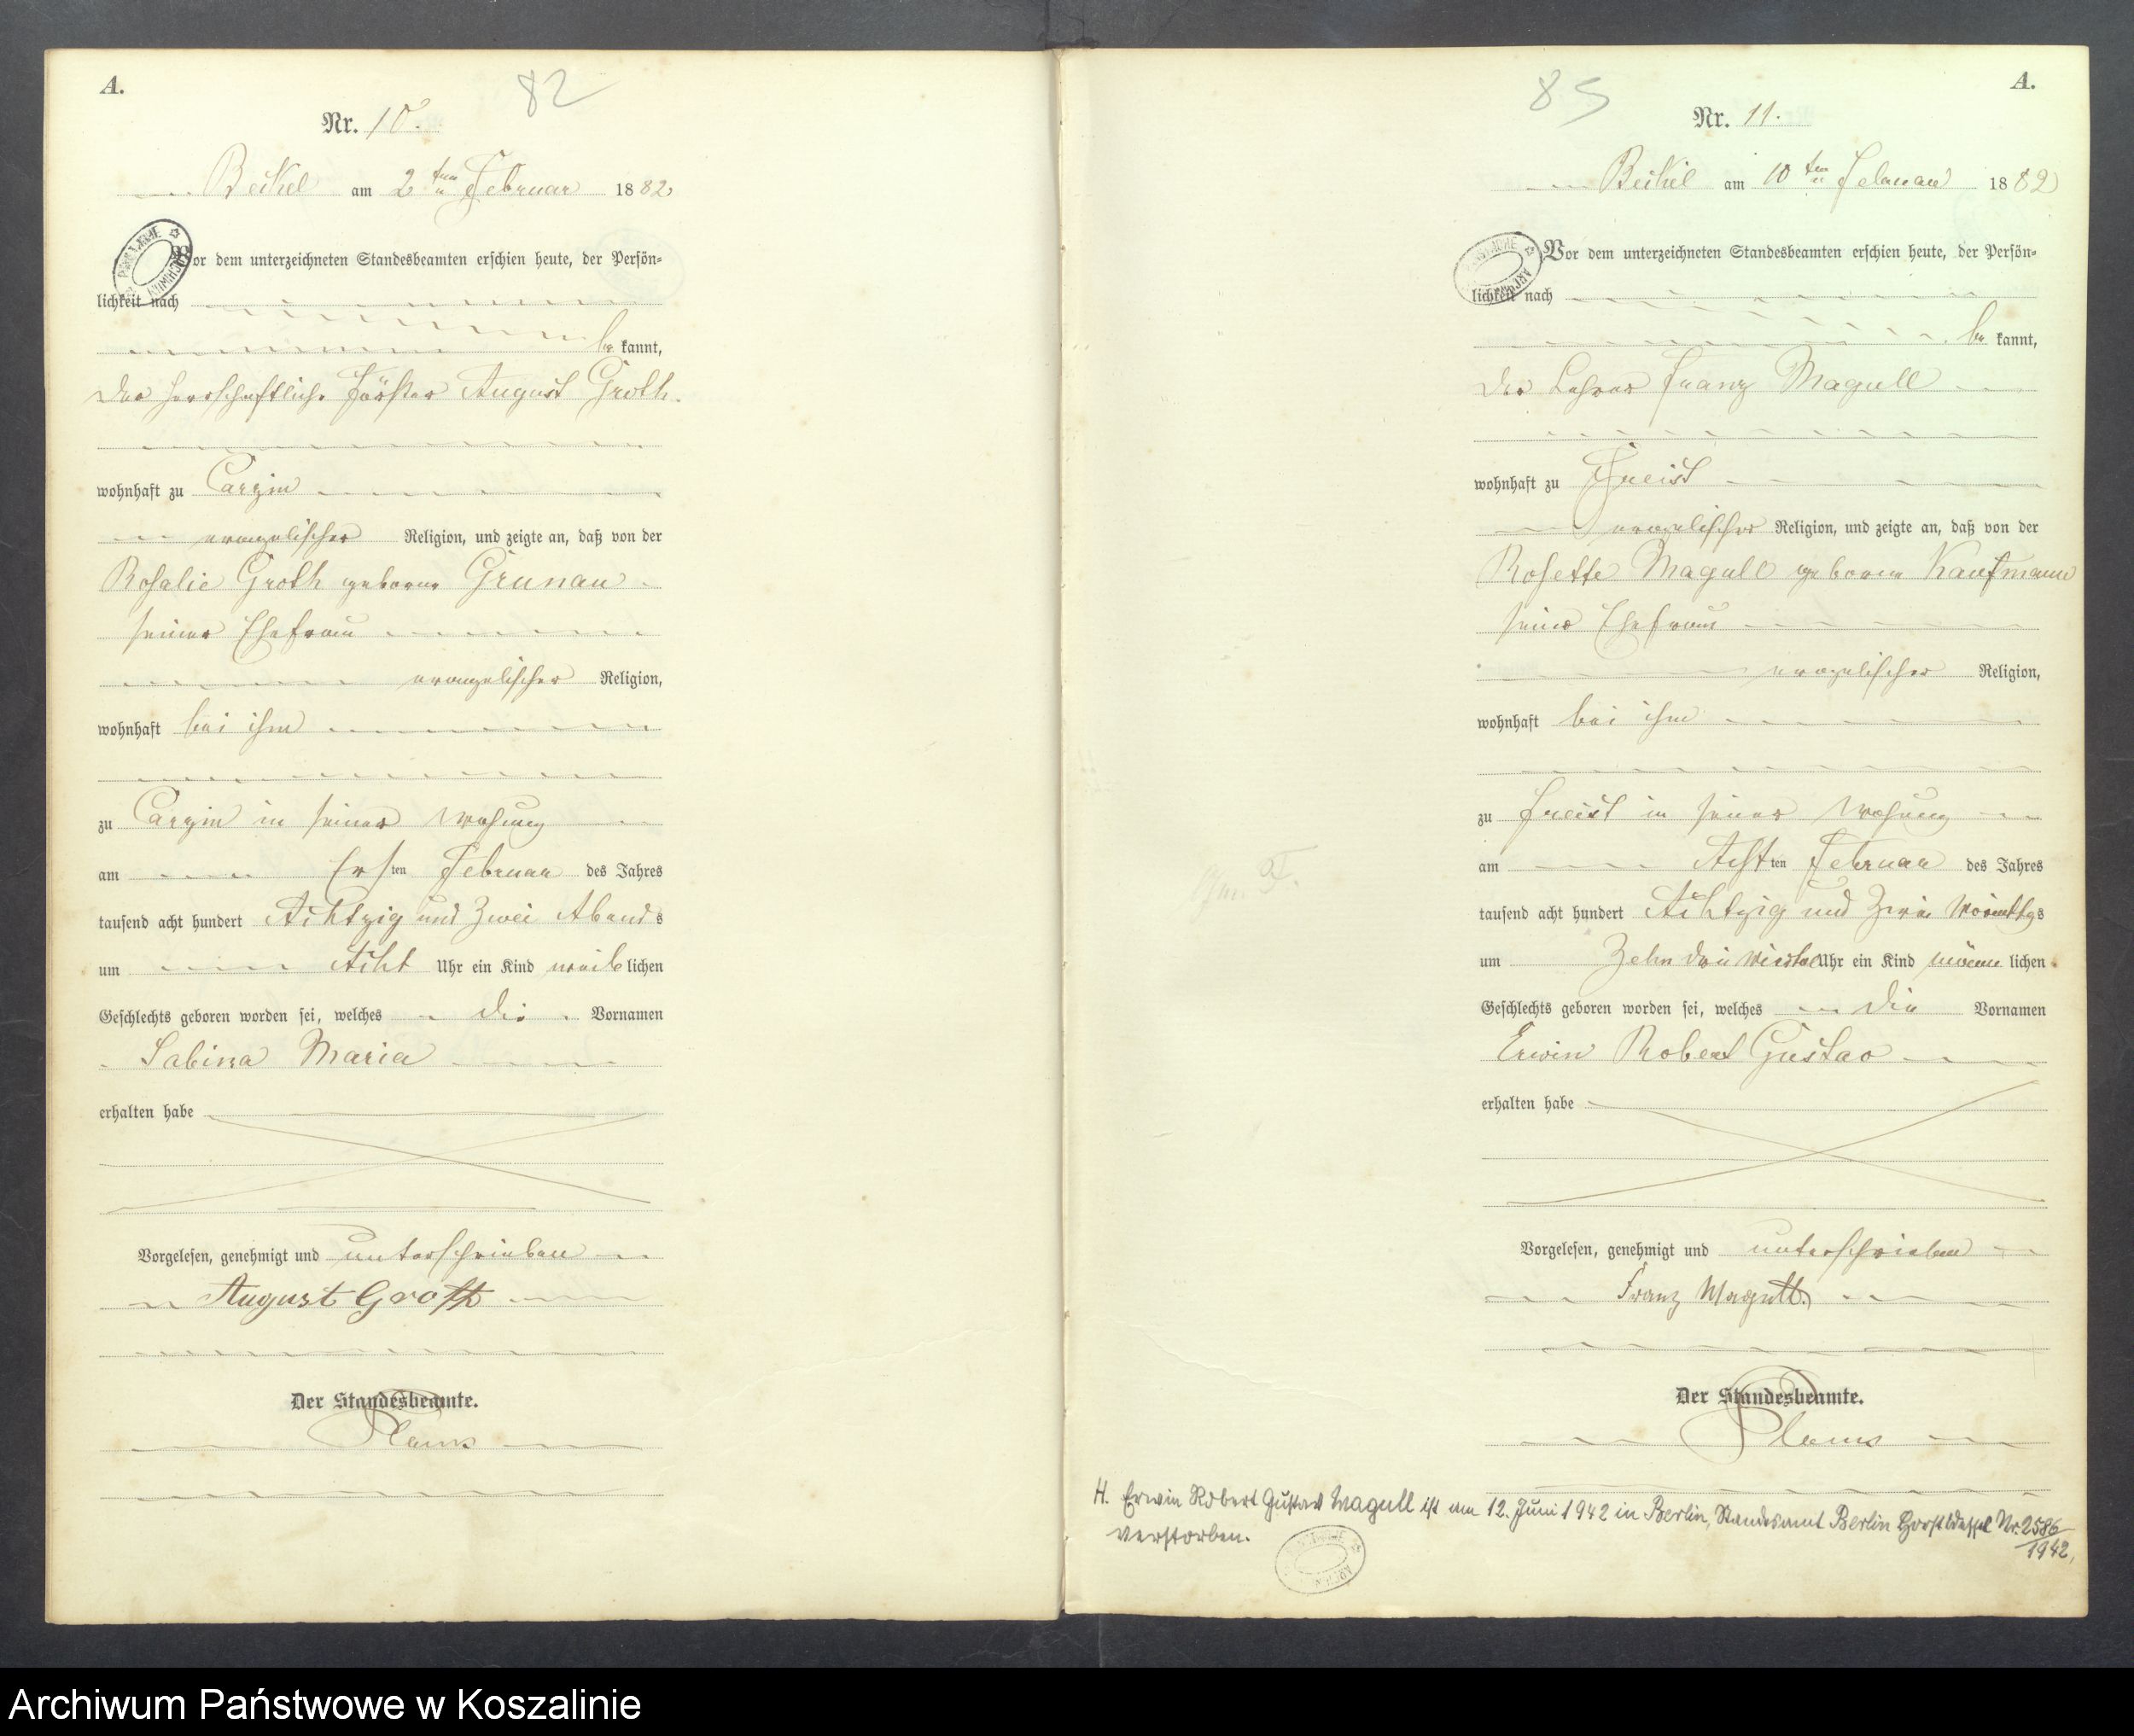 A.
82
Nr. 10.
Beckel am 2ten Februar 1882
Vor dem unterzeichneten Standesbeamten erschien heute, der Persön=
lichkeit nach
be kannt,
der herrschaftliche Förster August Groth.
wohnhaft zu Carzin
evangelischer Religion, und zeigte an, daß von der
Rosalie Groth geborne Grunau
seiner Ehefrau
evangelischer Religion,
wohnhaft bei ihm
zu Carzin in seiner Wohnung
am Ersten Februar des Jahres
tausend acht hundert Achtzig und Zwei Abends
um Acht Uhr ein Kind weiblichen
Geschlechts geboren worden sei, welches die Vornamen
Sabina Maria
erhalten habe
Vorgelesen, genehmigt und unterschrieben
August Groth
Der Standesbeamte.
A.
85
Nr. 11.
Beckel am 10ten Februar 1882
Vor dem unterzeichneten Standesbeamten erschien heute, der Persön=
lichkeit nach
be kannt,
der Lehrer Franz Magull
wohnhaft zu Freist
evangelischer Religion, und zeigte an, daß von der
Rosette Magull geborne Kaufmann
seiner Ehefrau
evangelischer Religion,
wohnhaft bei ihm
zu Freist in seiner Wohnung
am Achten Februar des Jahres
tausend acht hundert Achtzig und Zwei Vormittgs
um Zehn drei Viertel Uhr ein Kind männlichen
Geschlechts geboren worden sei, welches die Vornamen
Erwin Robert Gustav
erhalten habe
Vorgelesen, genehmigt und unterschrieben
Franz Magull.
Der Standesbeamte.
H. Erwin Robert Gustav Magull ist am 12. Juni 1942 in Berlin, Standesamt Berlin Horst Wessel Nr. 2586/1942,
verstorben.
Archiwum Państwowe w Koszalinie